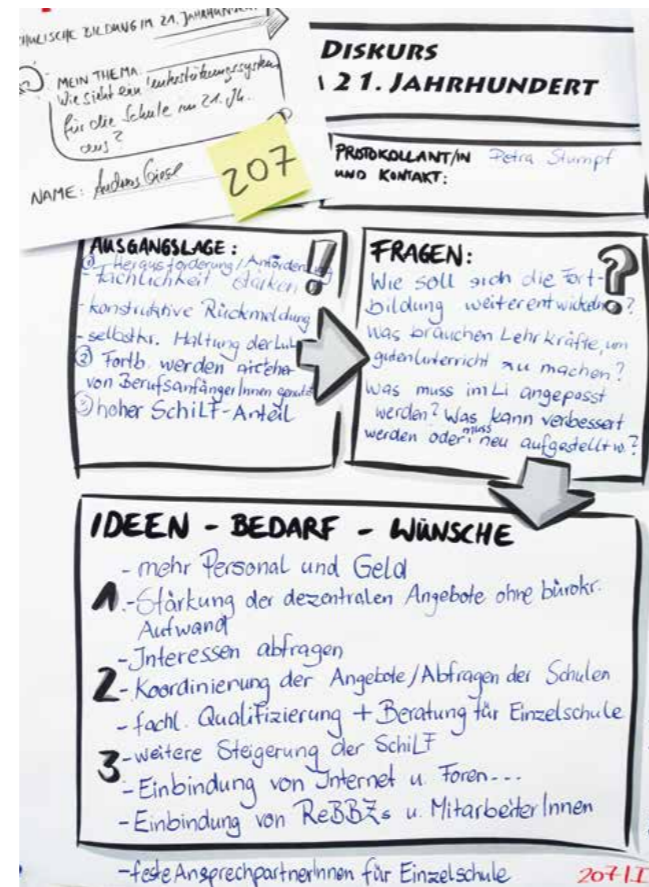 SCHULISCHE BILDUNG IM 21. JAHRHUNDERT
MEIN THEMA:
Wie sieht ein Unterstützungssystem
für die Schule im 21. Jh.
aus?
NAME: Andreas Giese
207
DISKURS
21. JAHRHUNDERT
PROTOKOLLANT/IN Petra Stumpf
UND KONTAKT:
AUSGANGSLAGE:
① Herausforderung/Anforderung
- Fachlichkeit stärken
- konstruktive Rückmeldung
- selbstkr. Haltung der
② Fortb. werden
von BerufsanfängerInnen genutzt
③ hoher SchiLF-Anteil
FRAGEN:
Wie soll sich die Fort-
bildung weiterentwickeln?
Was brauchen Lehrkräfte, um
guten Unterricht zu machen?
Was muss im Li angepasst
werden? Was kann verbessert
werden oder muss neu aufgestellt w.?
IDEEN - BEDARF - WÜNSCHE
- mehr Personal und Geld
1. - Stärkung der dezentralen Angebote ohne bürokr.
Aufwand
- Interessen abfragen
2 - Koordinierung der Angebote/Abfragen der Schulen
- fachl. Qualifizierung + Beratung für Einzelschule
3 - weitere Steigerung der SchiLF
- Einbindung von Internet u. Foren...
- Einbindung von ReBBZs u. MitarbeiterInnen
- feste AnsprechpartnerInnen für Einzelschule
207 I.I